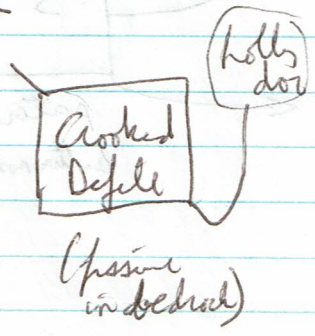 holly
door
Crooked
Defile
(fissure
in bedrock)